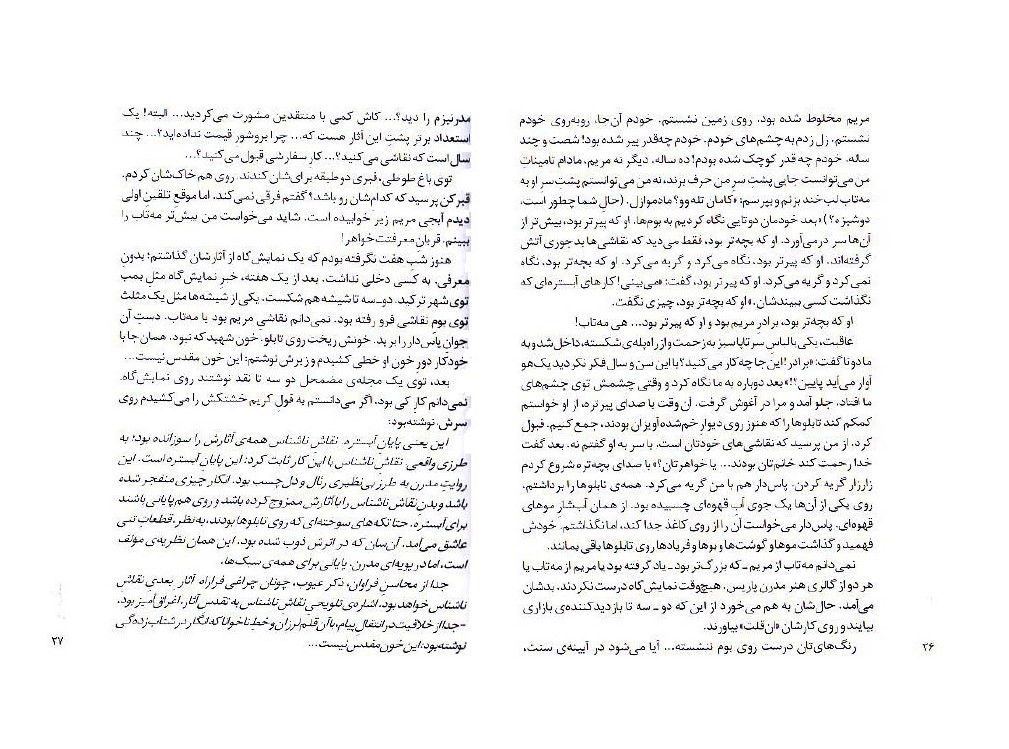 مریم مخلوط شده بود. روی زمین نشستم. خودم آن‌جا، روبه‌روی خودم
نشستم. زل زدم به چشم‌های خودم. خودم چه‌قدر پیر شده بود! شصت و چند
ساله. خودم چه قدر کوچک شده بودم! ده ساله. دیگر نه مریم، مادام تامیناتِ
من می‌توانست جایی پشتِ سرِ من حرف بزند، نه من می‌توانستم پشتِ سرِ او به
مه‌تاب لب‌خند بزنم و بپرسم: «کامان تله‌وو؟ مادموازل. (حالِ شما چطور است،
دوشیزه؟)» بعد خودمان دوتایی نگاه کردیم به بوم‌ها. او که پیرتر بود، بیش‌تر از
آن‌ها سر درمی‌آورد. او که بچه‌تر بود، فقط می‌دید که نقاشی‌ها بدجوری آتش
گرفته‌اند. او که پیرتر بود، نگاه می‌کرد و گریه می‌کرد. او که بچه‌تر بود، نگاه
نمی‌کرد و گریه می‌کرد. او که پیرتر بود، گفت: «می‌بینی! کارهای آبستره‌ای که
نگذاشت کسی ببیندشان.» او که بچه‌تر بود، چیزی نگفت.
او که بچه‌تر بود، برادرِ مریم بود و او که پیرتر بود... هی مه‌تاب!
عاقبت، یکی با لباسِ سر تا پا سبز به زحمت و از راه‌پله‌ی شکسته، داخل شد و به
ما دو تا گفت: «برادر! این‌جا چه‌کار می‌کنید؟ با این سن و سال فکر نکردید یک‌هو
آوار می‌آید پایین؟!» بعد دوباره به ما نگاه کرد و وقتی چشمش توی چشم‌های
ما افتاد، جلو آمد و مرا در آغوش گرفت. آن وقت با صدای پیرتره، از او خواستم
کمکم کند تابلوها را که هنوز روی دیوارِ خم‌شده آویزان بودند، جمع کنیم. قبول
کرد. از من پرسید که نقاشی‌های خودتان است، با سر به او گفتم نه. بعد گفت
خدا رحمت کند خانم‌تان بودند... یا خواهرتان؟» با صدای بچه‌تره شروع کردم
زارزار گریه کردن. پاس‌دار هم با من گریه می‌کرد. همه‌ی تابلوها را برداشتم.
روی یکی از آن‌ها یک جوی آبِ قهوه‌ای چسبیده بود. از همان آب‌شارِ موهای
قهوه‌ای. پاس‌دار می‌خواست آن را از روی کاغذ جدا کند، اما نگذاشتم. خودش
فهمید و گذاشت موها و گوشت‌ها و بوها و فریادها روی تابلوها باقی بمانند.
نمی‌دانم مه‌تاب از مریم ـ که بزرگ‌تر بود ـ یاد گرفته بود یا مریم از مه‌تاب یا
هر دو از گالری هنر مدرن پاریس. هیچ‌وقت نمایش‌گاه درست نکردند. بدشان
می‌آمد. حال‌شان به هم می‌خورد از این که دو ـ سه تا بازدیدکننده‌ی بازاری
بیایند و روی کارشان «ان‌قلت» بیاورند.
رنگ‌های‌تان درست روی بوم ننشسته... آیا می‌شود در آیینه‌ی سنت،
۲۶
مدرنیزم را دید؟... کاش کمی با منتقدین مشورت می‌کردید... البته! یک
استعداد برتر پشتِ این آثار هست که... چرا بروشورِ قیمت نداده‌اید؟... چند
سال است که نقاشی می‌کنید؟... کارِ سفارشی قبول می‌کنید؟...
توی باغ طوطی، قبری دو طبقه برای‌شان کندند. روی هم خاک‌شان کردم.
قبرکن پرسید که کدام‌شان رو باشد؟ گفتم فرقی نمی‌کند، اما موقع تلقینِ اولی
دیدم آبجی مریم زیر خوابیده است. شاید می‌خواست من بیش‌تر مه‌تاب را
ببینم. قربان معرفتت خواهر!
هنوز شب هفت نگرفته بودم که یک نمایش‌گاه از آثارشان گذاشتم؛ بدون
معرفی. به کسی دخلی نداشت. بعد از یک هفته، خبرِ نمایش‌گاه مثل بمب
توی شهر ترکید. دو ـ سه تا شیشه هم شکست. یکی از شیشه‌ها مثل یک مثلث
توی بومِ نقاشی فرو رفته بود. نمی‌دانم نقاشیِ مریم بود یا مه‌تاب. دستِ آن
جوانِ پاس‌دار را برید. خونش ریخت روی تابلو. خودِ شهید که نبود. همان جا با
خودکار دورِ خونِ او خطی کشیدم و زیرش نوشتم: این خون مقدس نیست...
بعد، توی یک مجله‌ی مضمحل دو سه تا نقد نوشتند روی نمایش‌گاه.
نمی‌دانم کارِ کی بود، اگر می‌دانستم به قولِ کریم خشتکش را می‌کشیدم روی
سرش. نوشته بود:
این یعنی پایانِ آبستره. نقاشِ ناشناس همه‌ی آثارش را سوزانده بود؛ به
طرزی واقعی. نقاشِ ناشناس با این کار ثابت کرد: این پایانِ آبستره است. این
روایتِ مدرن به طرزِ بی‌نظیری رئال و دل‌چسب بود. انگار چیزی منفجر شده
باشد و بدنِ نقاش ناشناس را با آثارش ممزوج کرده باشد و روی هم پایانی باشند
برای آبستره. حتا تکه‌های سوخته‌ای که روی تابلوها بودند، به نظر، قطعاتِ تنی
عاشق می‌آمد. آن‌سان که در اثرش ذوب شده بود. این همان نظریه‌ی مؤلف
است، اما در پویه‌ای مدرن. پایانی برای همه‌ی سبک‌ها.
جدا از محاسنِ فراوان، ذکر عیوب، چونان چراغی فراراهِ آثارِ بعدیِ نقاشِ
ناشناس خواهد بود. اشاره‌ی تلویحیِ نقاشِ ناشناس به تقدسِ آثار، اغراق‌آمیز بود.
-جدا از خلاقیت در انتقالِ پیام، با آن قلمِ لرزان و خطِ ناخوانا که انگار در شتاب‌زده‌گی
نوشته بود: این خون مقدس نیست...
۲۷